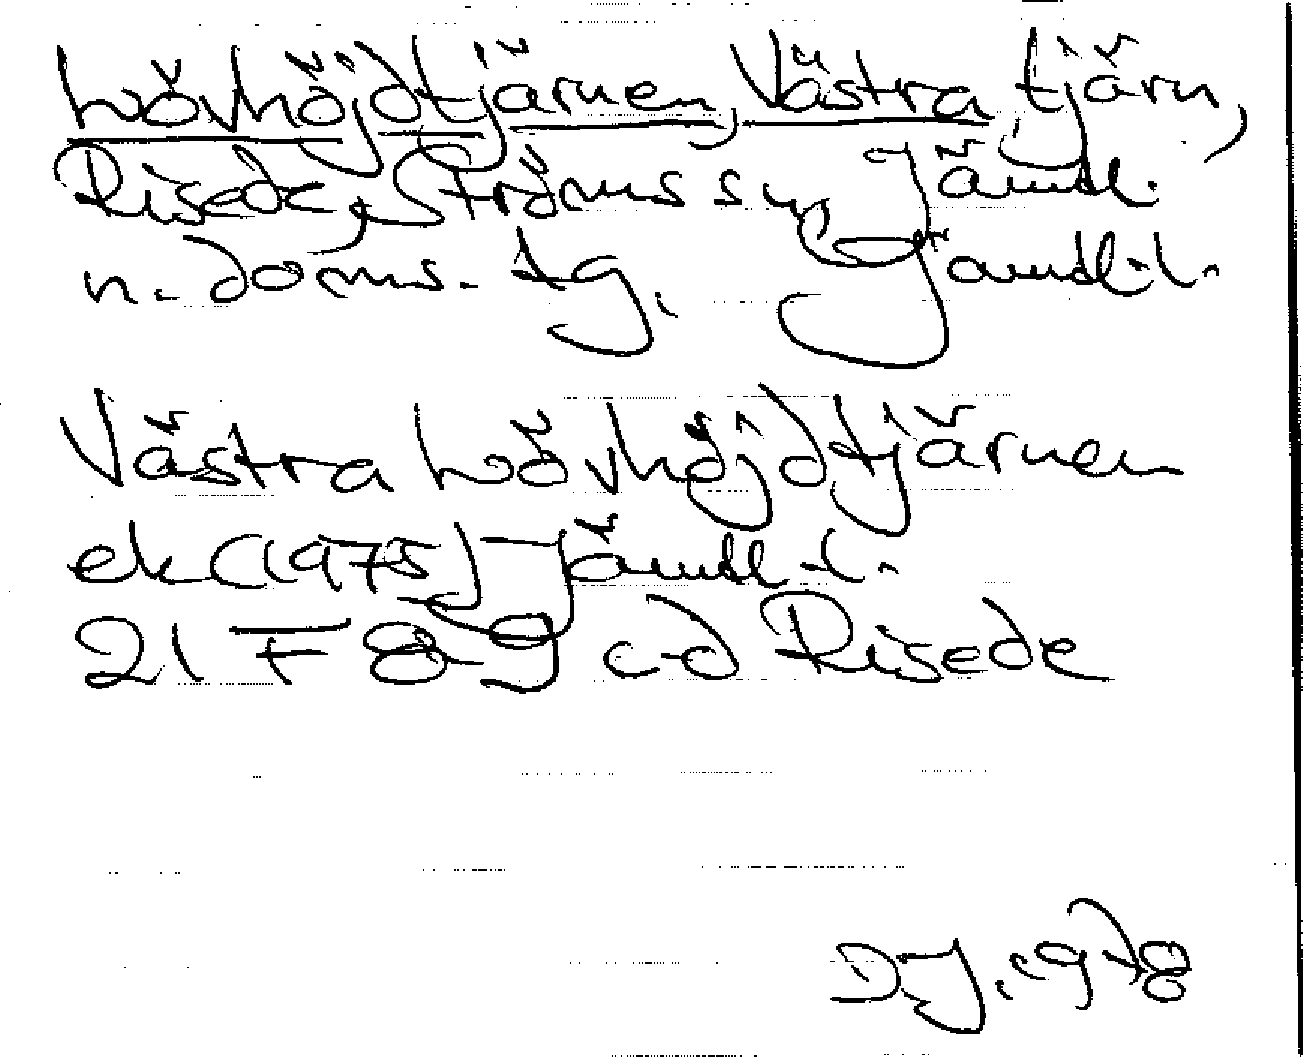 Lövhöjdtjärnen, Västra, tjärn,
Risede, Ströms sn, Jämtl.
n. doms. tg, Jämtl.l.
Västra Lövhöjdtjärnen
ek (1975) Jämtl.l.
21 F 8-9 c-d Risede
DJ. 1978